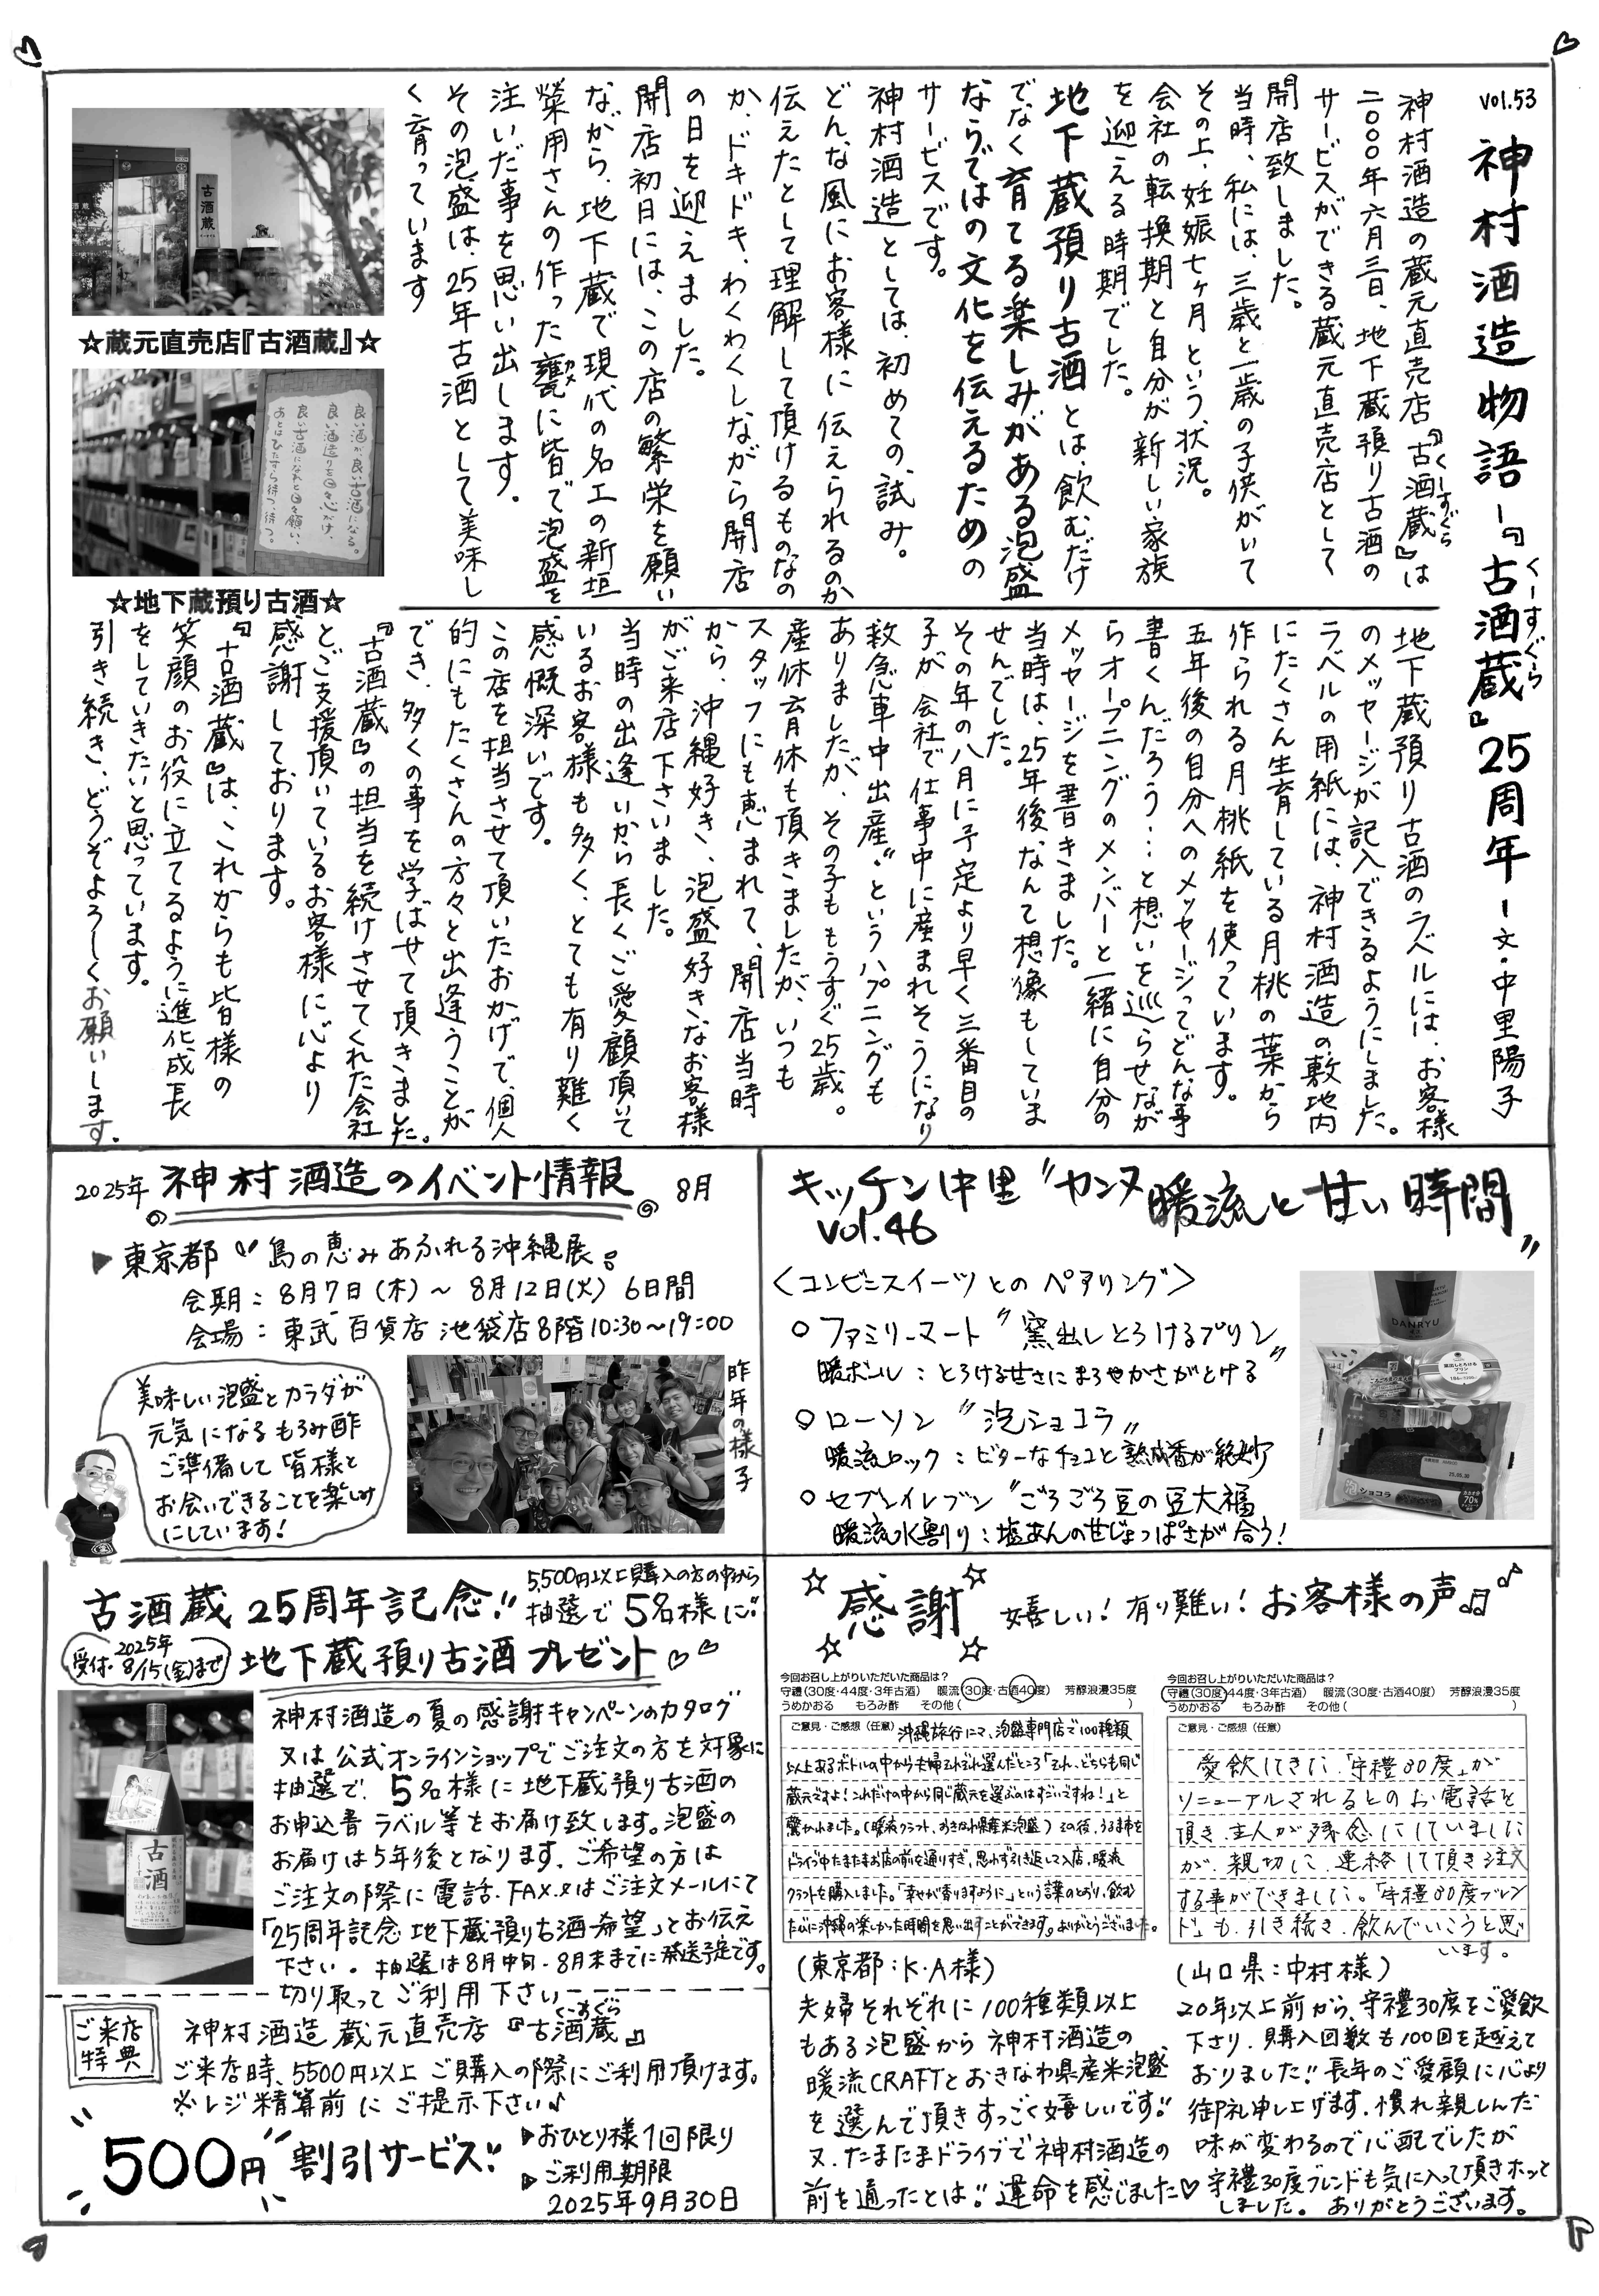 vol.53
神村酒造物語-『古酒蔵』25周年-文・中里陽子
くーすぐら
神村酒造の蔵元直売店『古酒蔵』は
くーすぐら
二〇〇〇年六月三日、地下蔵預り古酒の
サービスができる蔵元直売店として
開店致しました。
当時、私には、三歳と一歳の子供がいて
その上、妊娠七ヶ月という状況。
会社の転換期と自分が新しい家族
を迎える時期でした。
地下蔵預り古酒とは、飲むだけ
でなく育てる楽しみがある泡盛
ならではの文化を伝えるための
サービスです。
神村酒造としては、初めての試み。
どんな風にお客様に伝えられるのか
伝えたとして理解して頂けるものなの
か、ドキドキ、わくわくしながら開店
の日を迎えました。
開店初日には、この店の繁栄を願い
ながら、地下蔵で現代の名工の新垣
榮用さんの作った甕に皆で泡盛を
カメ
注いだ事を思い出します。
その泡盛は、25年古酒として美味し
く育っています
☆蔵元直売店『古酒蔵』☆
良い酒が良い古酒になる。
良い酒造りを日々心がけ、
良い古酒になれと日々願い、
あとはひたすら待つ、待つ。
☆地下蔵預り古酒☆
地下蔵預り古酒のラベルには、お客様
のメッセージが記入できるようにしました。
ラベルの用紙には、神村酒造の敷地内
にたくさん生育している月桃の葉から
作られる月桃紙を使っています。
五年後の自分へのメッセージってどんな事
書くんだろう…と想いを巡らせなが
らオープニングのメンバーと一緒に自分の
メッセージを書きました。
当時は、25年後なんて想像もしていま
せんでした。
その年の八月に予定より早く三番目の
子が会社で仕事中に産まれそうになり
救急車中出産〟というハプニングも
ありましたが、その子ももうすぐ25歳。
産休育休も頂きましたが、いつも
スタッフにも恵まれて、開店当時
から、沖縄好き、泡盛好きなお客様
がご来店下さいました。
当時の出逢いから長くご愛顧頂いて
いるお客様も多く、とても有り難く
感慨深いです。
この店を担当させて頂いたおかげで、個人
的にもたくさんの方々と出逢うことが
でき、多くの事を学ばせて頂きました。
『古酒蔵』の担当を続けさせてくれた会社
とご支援頂いているお客様に心より
感謝しております。
『古酒蔵』は、これからも皆様の
笑顔のお役に立てるように進化、成長
をしていきたいと思っています。
引き続き、どうぞよろしくお願いします。
2025年 神村酒造のイベント情報 8月
▶東京都 〝島の恵みあふれる沖縄展〟
会期：8月7日(木)～8月12日(火) 6日間
会場：東武百貨店 池袋店8階10:30～19:00
美味しい泡盛とカラダが
元気になるもろみ酢
ご準備して皆様と
お会いできることを楽しみ
にしています!
昨年の様子
キッチン中里〝カンヌ暖流と甘い時間〟
vol.46
〈コンビニスイーツとのペアリング〉
○ファミリーマート〝窯出しとろけるプリン〟
暖ボール：とろける甘さにまろやかさがとける
○ローソン〝泡ショコラ〟
暖流ロック：ビターなチョコと熟成香が絶妙
○セブンイレブン〝ごろごろ豆の豆大福
暖流水割り：塩あんの甘じょっぱさが合う!
DANRYU
古酒蔵25周年記念!!
5,500円以上購入の方の中から
抽選で5名様に!!
受付・2025年8/15(金)まで
地下蔵預り古酒プレゼント♡♡
神村酒造の夏の感謝キャンペーンのカタログ
又は公式オンラインショップでご注文の方を対象に
抽選で、5名様に地下蔵預り古酒の
お申込書 ラベル等をお届け致します。泡盛の
お届けは5年後となります。ご希望の方は
ご注文の際に電話・FAX又はご注文メールにて
「25周年記念 地下蔵預り古酒希望」とお伝え
下さい。抽選は8月中旬・8月末までに発送予定です。
古酒
切り取ってご利用下さい
ご来店特典
神村酒造 蔵元直売店『古酒蔵』
くーすぐら
ご来店時、5500円以上ご購入の際にご利用頂けます。
※レジ精算前にご提示下さい♪
500円 割引サービス!!
▶おひとり様1回限り
▶ご利用期限
2025年9月30日
☆感謝☆ 嬉しい!有り難い!お客様の声♫♪
今回お召し上がりいただいた商品は？
守禮(30度・44度・3年古酒) 暖流(30度・古酒40度) 芳醇浪漫35度
うめかおる もろみ酢 その他( )
ご意見・ご感想(任意) 沖縄旅行にて、泡盛専門店で100種類
以上あるボトルの中から夫婦それぞれ選んだところ「それ、どちらも同じ
蔵元ですよ!これだけの中から同じ蔵元を選ぶのはすごいですね!」と
驚かれました。(暖流クラフト、おきなわ県産米泡盛)その後、うるま市を
ドライブ中たまたまお店の前を通りすぎ、思わず引き返して入店、暖流
クラフトを購入しました。「幸せが香りますように」という言葉のとおり、飲む
たびに沖縄の楽しかった時間を思い出すことができます。ありがとうございました。
(東京都：K・A様)
夫婦それぞれに100種類以上
もある泡盛から神村酒造の
暖流CRAFTとおきなわ県産米泡盛
を選んで頂きすっごく嬉しいです!!
又、たまたまドライブで神村酒造の
前を通ったとは!!運命を感じました♡
今回お召し上がりいただいた商品は？
守禮(30度・44度・3年古酒) 暖流(30度・古酒40度) 芳醇浪漫35度
うめかおる もろみ酢 その他( )
ご意見・ご感想(任意)
愛飲してきた「守禮30度」が
リニューアルされるとのお電話を
頂き、主人が残念にしていました
が、親切に、連絡して頂き注文
する事ができました。「守禮30度ブレン
ド」も、引き続き、飲んでいこうと思
います。
(山口県：中村様)
20年以上前から、守禮30度をご愛飲
下さり、購入回数も100回を越えて
おりました!!長年のご愛顧に心より
御礼申し上げます。慣れ親しんだ
味が変わるので心配でしたが
守禮30度ブレンドも気に入って頂きホッと
しました。ありがとうございます。